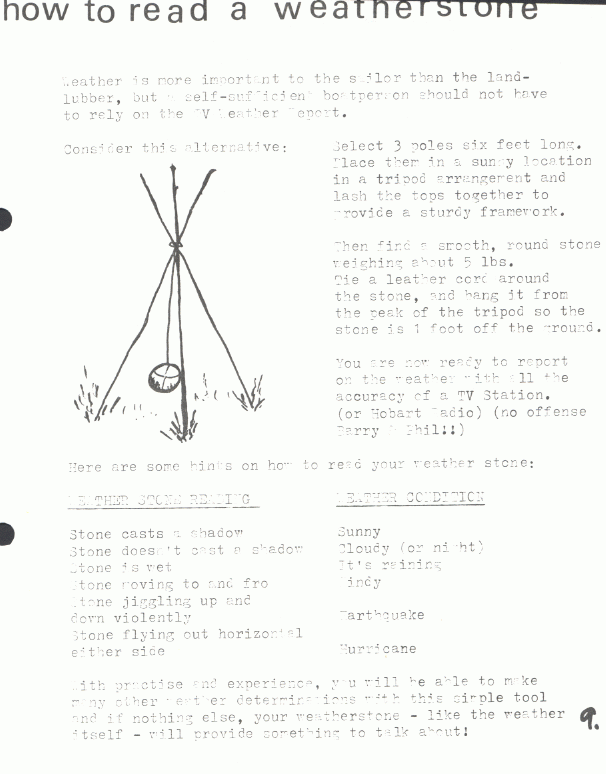 how to read a weatherstone
Weather is more important to the sailor than the land-
lubber, but a self-sufficient boatperson should not have
to rely on the TV Weather Report.
Consider this alternative:
Select 3 poles six feet long.
Place them in a sunny location
in a tripod arrangement and
lash the tops together to
provide a sturdy framework.
Then find a smooth, round stone
weighing about 5 lbs.
Tie a leather cord around
the stone, and hang it from
the peak of the tripod so the
stone is 1 foot off the ground.
You are now ready to report
on the weather with all the
accuracy of a TV Station.
(or Hobart Radio) (no offense
Phil!!)
Here are some hints on how to read your weather stone:
WEATHER STONE READING
WEATHER CONDITION
Stone casts a shadow
Sunny
Stone doesn't cast a shadow
Cloudy (or night)
Stone is wet
It's raining
Stone moving to and fro
Windy
Stone jiggling up and
down violently
Earthquake
Stone flying out horizontal
either side
Hurricane
With practise and experience, you will be able to make
many other weather determinations with this simple tool
and if nothing else, your weatherstone - like the weather
itself - will provide something to talk about!
9.